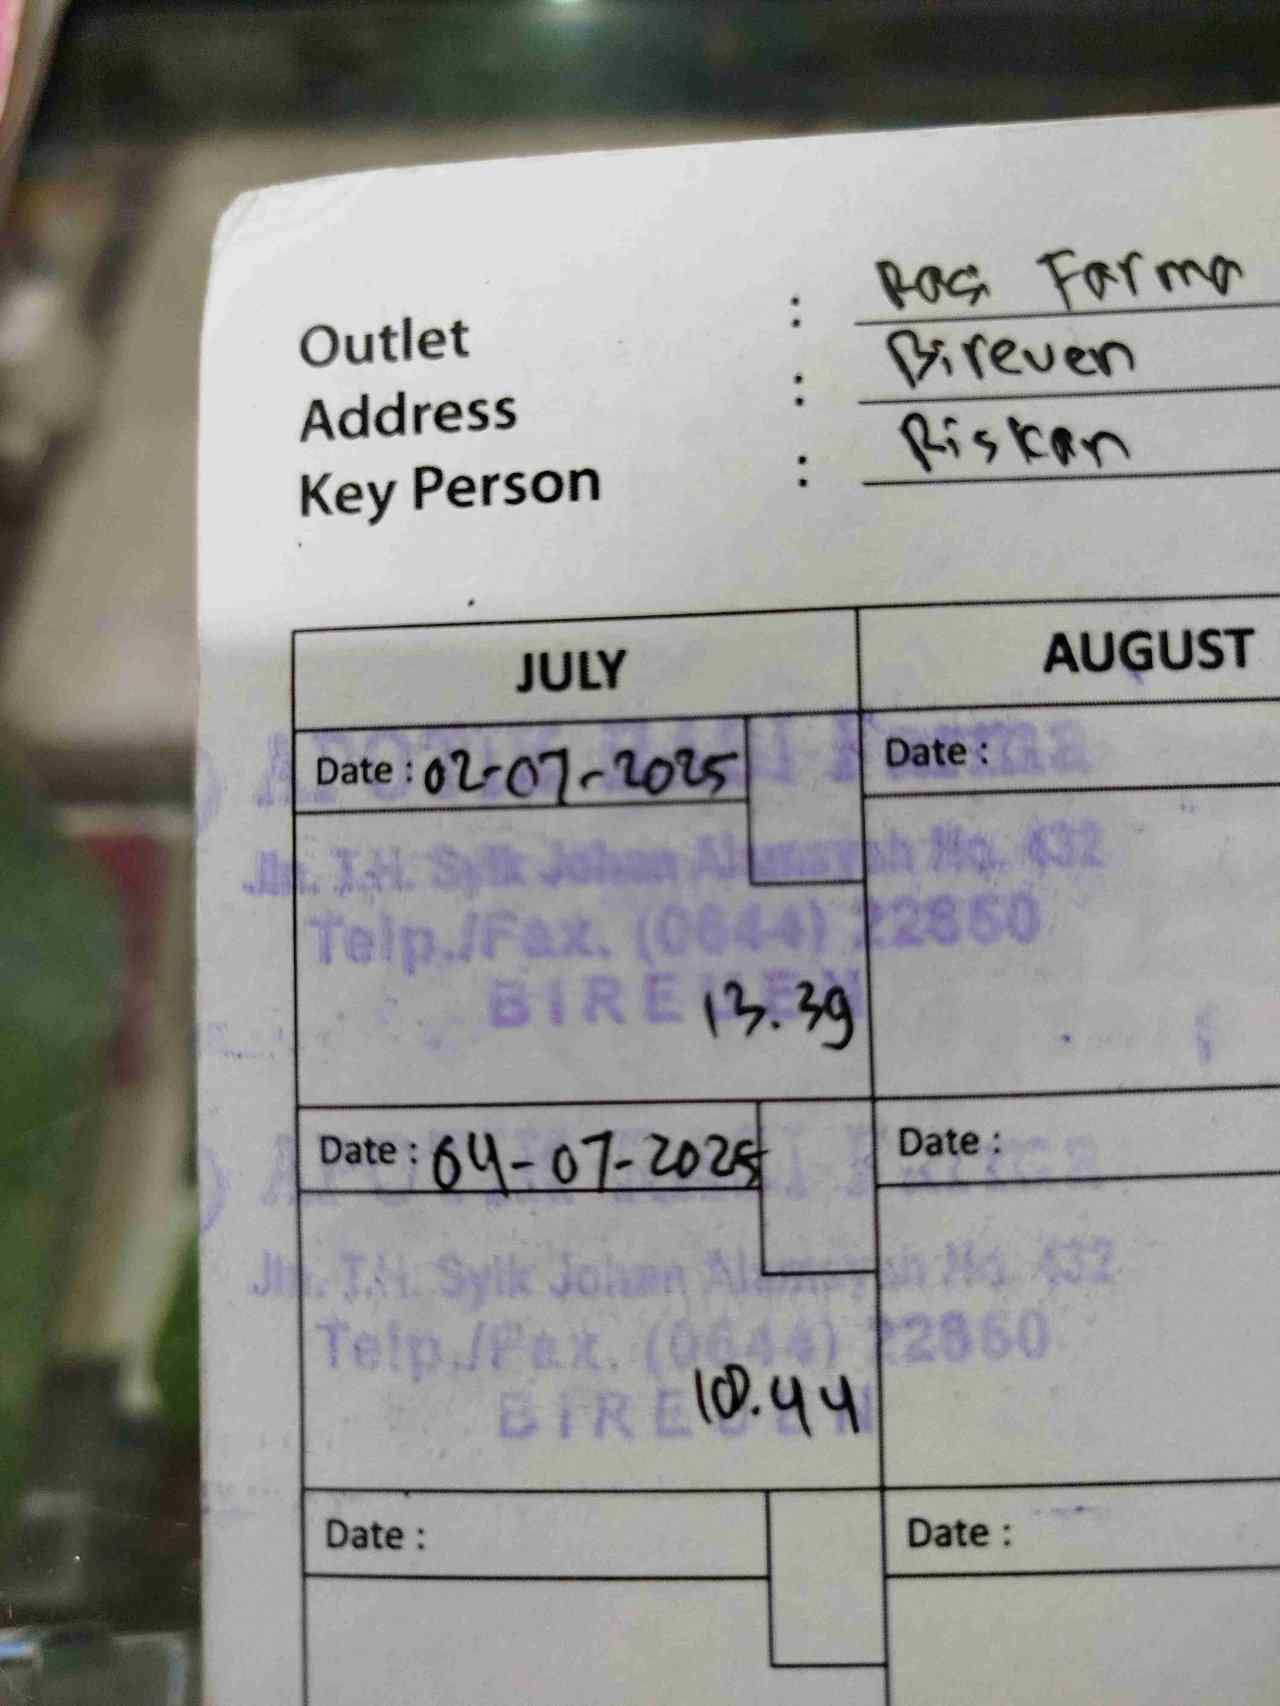 Outlet : Farma
Address : Bireuen
Key Person : Riskan
JULY AUGUST
Date : 02-07-2025 Date :
Farma
Jln. T.H. Syik Johan Alamsyah No. 432
Telp./Fax. (0644) 22850
BIREUEN
13.39
Date : 04-07-2025 Date :
Jln. T.H. Syik Johan Alamsyah No. 432
Telp./Fax. (0644) 22850
BIREUEN
10.44
Date : Date :